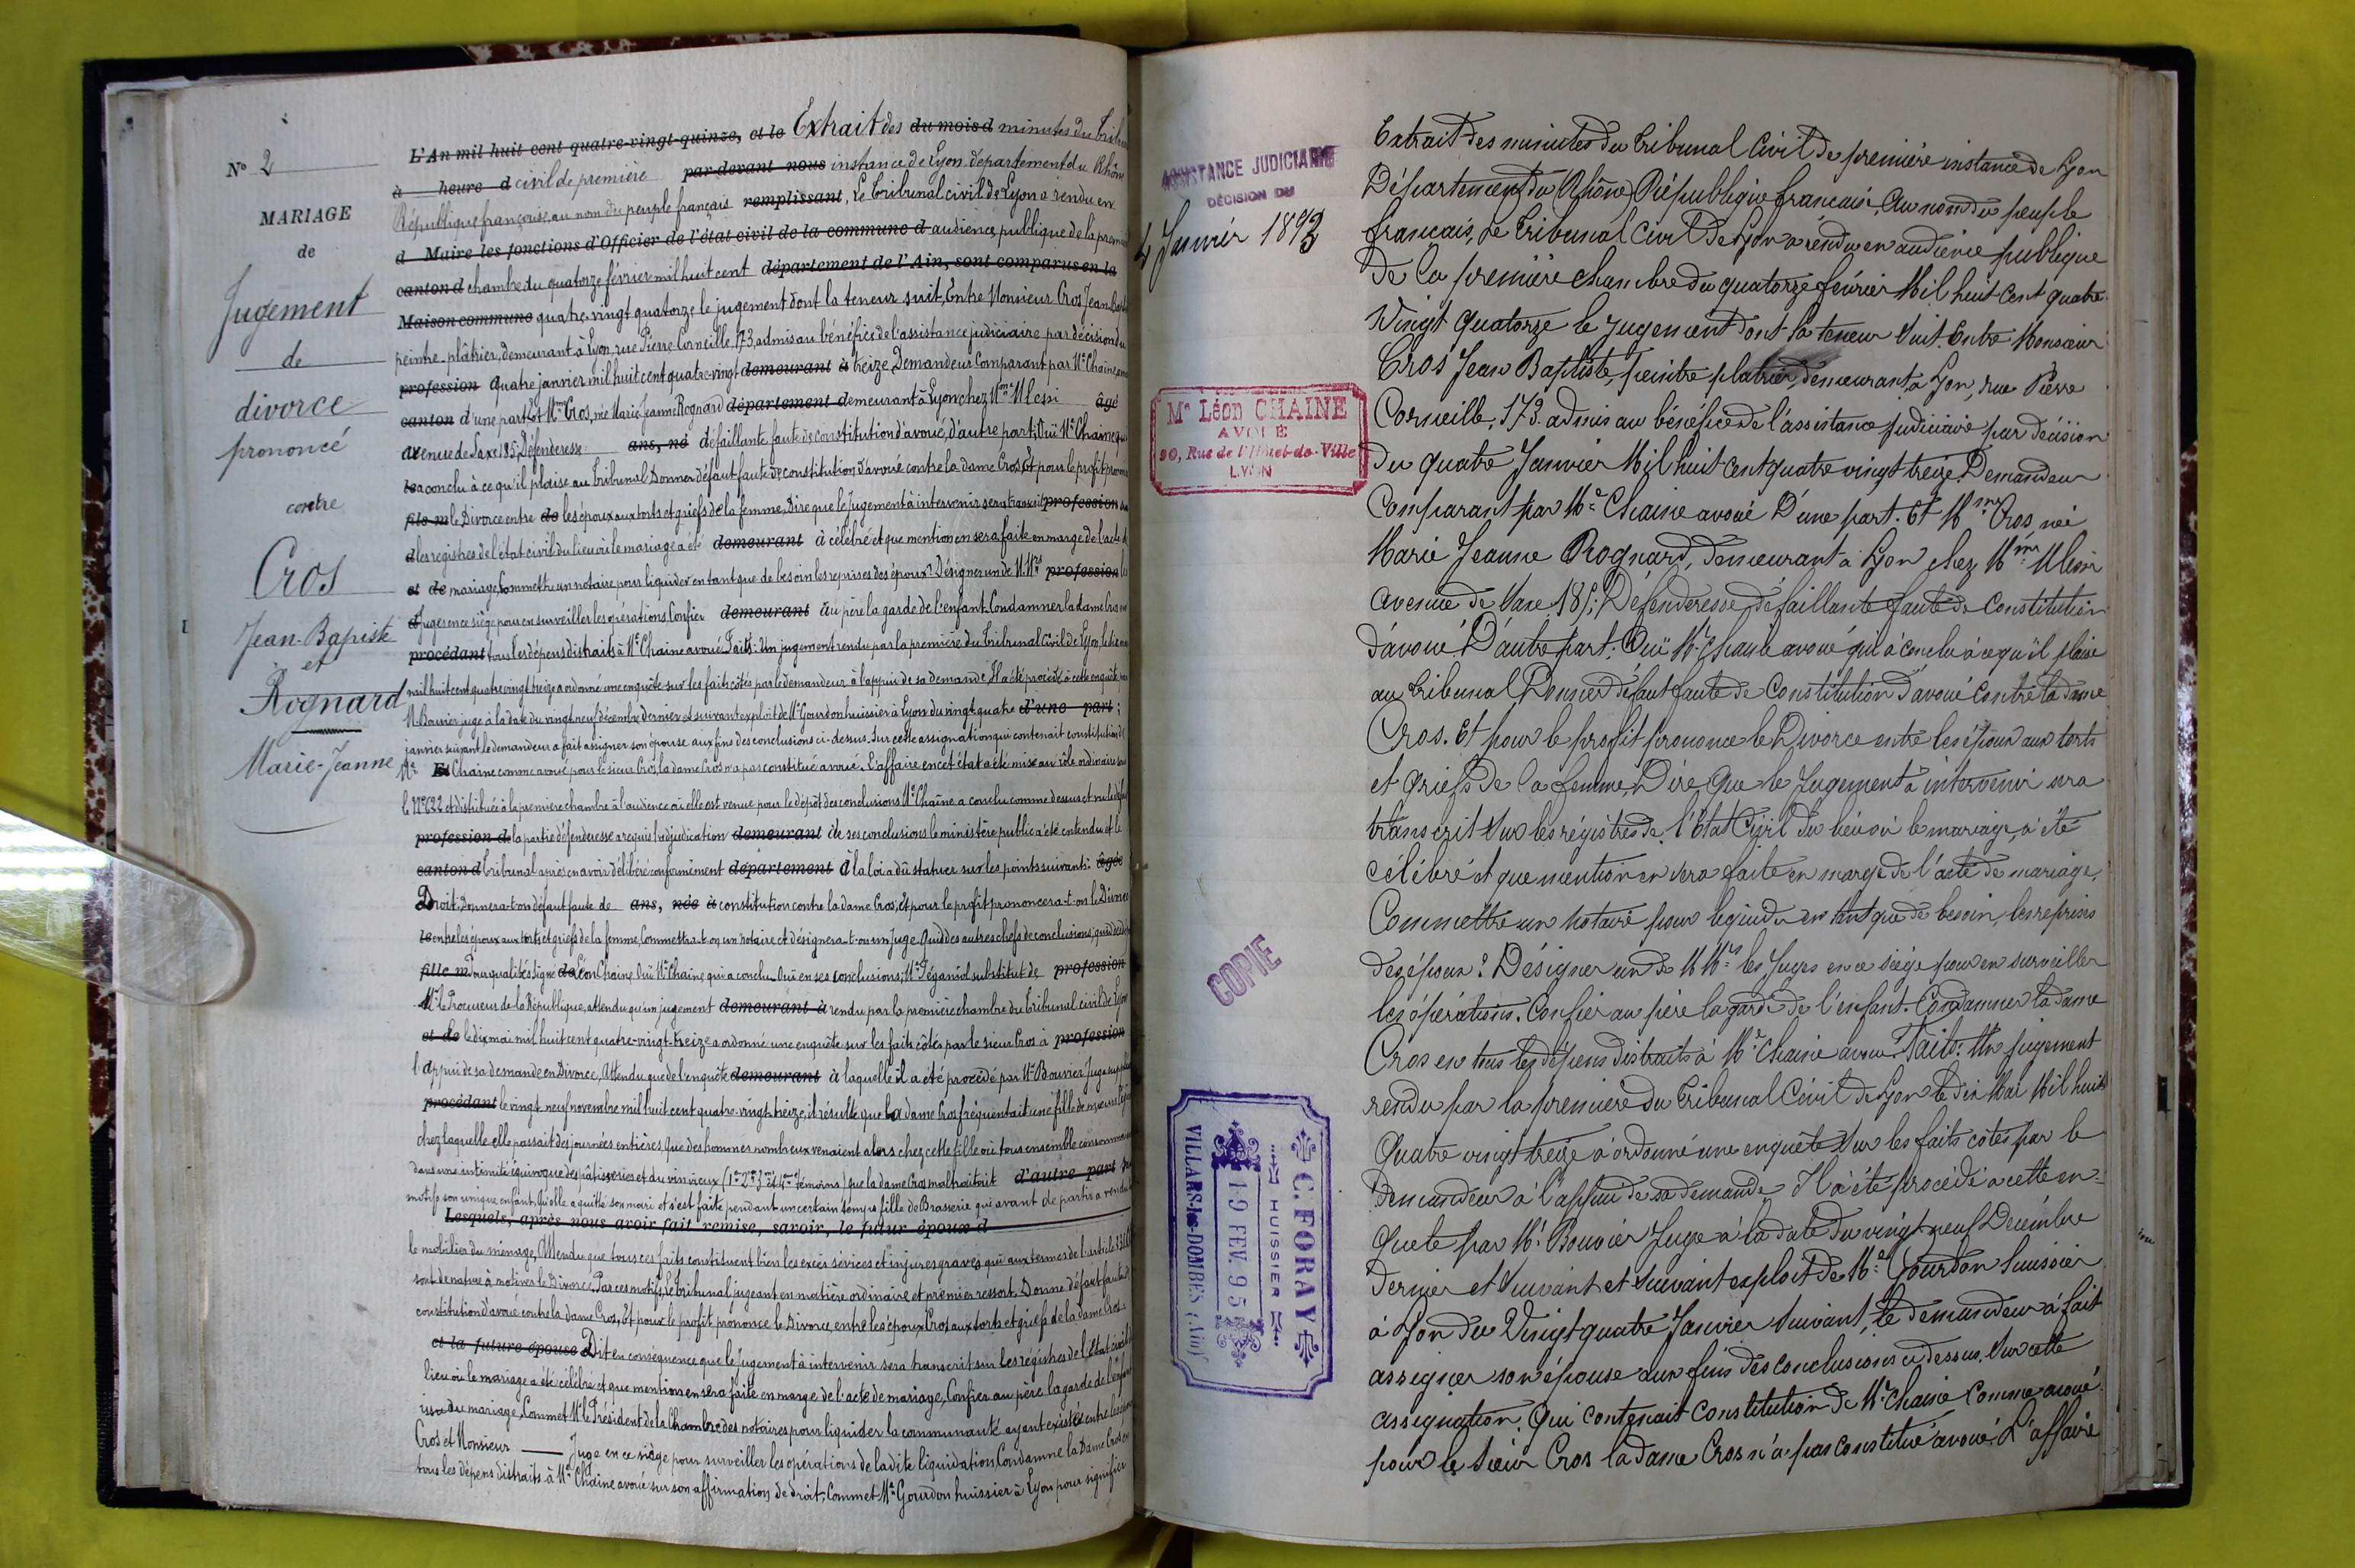 N° 2
MARIAGE
de
Jugement
de
divorce
prononcé
contre
Cros
Jean-Bapiste
et
Rognard
Marie-Jeanne
L'An mil huit cent quatre-vingt-quinze, et le Extrait des du mois d minutes du
à heure d civil de première par-devant nous instance de Lyon département du Rhône
République française, au nom du peuple français remplissant, Le Tribunal civil de Lyon a rendu en
d Maire les fonctions d'Officier de l'état civil de la commune d audience publique de la
canton d chambre du quatorze février mil huit cent département de l'Ain, sont comparus en la
Maison commune quatre-vingt quatorze le jugement dont la teneur suit, Entre Monsieur Cros Jean
peintre-plâtrier, demeurant à Lyon, rue Pierre Corneille, 173, admis au bénéfice de l'assistance judiciaire par décision du
profession quatre janvier mil huit cent quatre-vingt demeurant à treize Demandeur Comparant par Me Chaine
canton d'une part et Mme Cros, née Marie Jeanne Rognard département demeurant à Lyon chez Mme âgé
avenue de Saxe 185, Défenderesse ans, né défaillante faute de constitution d'avoué, d'autre part; Ouï Me Chaine
a conclu à ce qu'il plaise au Tribunal Donner défaut faute de constitution d'avoué contre la dame Cros, Et pour le profit
fils m le Divorce entre de les époux aux torts et griefs de la femme, Dire que le Jugement à intervenir sera transcrit profession
d les registres de l'état civil du lieu où le mariage a été demeurant à célébré et que mention en sera faite en marge de l'acte
et de mariage, Commettre un notaire pour liquider en tant que de besoin les reprises des époux? Désigner un de M.Mrs profession
d Juges en ce siège pour en surveiller les opérations Confier demeurant au père la garde de l'enfant. Condamner la dame Cros
procédant tous les dépens distraits à Me Chaine avoué. Faits: Un jugement rendu par la première du Tribunal civil de Lyon, le
mil huit cent quatre vingt treize a ordonné une enquête sur les faits côtés par le demandeur à l'appui de sa demande. Il a été procédé à cette enquête
M. Bouvier juge à la date du vingt neuf décembre dernier et suivant exploit de Me Gourdon huissier à Lyon du vingt quatre d'une part;
janvier suivant le demandeur a fait assigner son épouse aux fins des conclusions ci-dessus. Sur cette assignation qui contenait constitution de
Me Et Chaine comme avoué pour le sieur Cros, la dame Cros n'a pas constitué avoué. L'affaire en cet état a été mise au rôle ordinaire
le N° 622 et distribuée à la première chambre à l'audience où elle est venue pour le dépôt des conclusions Me Chaine a conclu comme dessus et
profession de la partie défenderesse a requis l'adjudication demeurant de ses conclusions le ministère public a été entendu et le
canton d Tribunal après en avoir délibéré conformément département à la loi a dû statuer sur les points suivants: âgée
Droit: Donnera-t-on défaut faute de ans, née à constitution contre la dame Cros, Et pour le profit prononcera-t-on le
entre les époux aux torts et griefs de la femme, Commettra-t-on un notaire et désignera-t-on un Juge. Quid des autres chefs de conclusions, quid
fille m Pour qualités Signé de Léon Chaine, Ouï Me Chaine qui a conclu. Ouï en ses conclusions, Mr Féganiol substitut de profession
Mr le Procureur de la République, attendu qu'un jugement demeurant à rendu par la première chambre du Tribunal civil de Lyon
et de le dix mai mil huit cent quatre-vingt-treize a ordonné une enquête sur les faits côtés par le sieur Cros à profession
l'appui de sa demande en Divorce, Attendu que de l'enquête demeurant à laquelle il a été procédé par Mr Bouvier Juge
procédant le vingt-neuf novembre mil huit cent quatre-vingt-treize, il résulte que la dame Cros fréquentait une fille de mœurs
chez laquelle elle passait des journées entières, que des hommes nombreux venaient alors chez cette fille où tous ensemble
dans une intimité équivoque des pâtisseries et du vin vieux (1er 2me 3me et 4me témoins) que la dame Cros maltraitait d'autre part
motifs son unique enfant, qu'elle a quitté son mari et s'est faite pendant un certain temps fille de Brasserie que avant de partir a vendu
Lesquels, après nous avoir fait remise, savoir, le futur époux d
le mobilier du ménage, Attendu que tous ces faits constituent bien les excès sévices et injures graves, qui aux termes de l'article
sont de nature à motiver le Divorce, Par ces motifs, Le tribunal jugeant en matière ordinaire et premier ressort. Donne défaut faute
constitution d'avoué contre la dame Cros, Et pour le profit prononce le Divorce, entre les époux Cros aux torts et griefs de la dame Cros
et la future épouse Dit en conséquence que le Jugement à intervenir sera transcrit sur les régistres de l'état civil
lieu où le mariage a été célébré et que mention en sera faite en marge de l'acte de mariage, Confier au père la garde de
issu du mariage, Commet Mr le Président de la Chambre des notaires pour liquider la communauté ayant existé entre les
Cros et Monsieur Juge en ce siège pour surveiller les opérations de ladite liquidation Condamne la Dame Cros en
tous les dépens distraits à Me Chaine avoué sur son affirmation de droit, Commet Me Gourdon huissier à Lyon pour signifier
ASSISTANCE JUDICIAIRE
DÉCISION DU
4 Janvier 1893
Me Léon CHAINE
AVOUÉ
90, Rue de l'Hôtel-de-Ville
LYON
COPIE
C. FORAY
HUISSIER
19 FEV. 95
VILLARS-les-DOMBES (Ain)
Extrait des minutes du Tribunal Civil de première instance de Lyon
Département du Rhône, République française, Au nom du peuple
français, Le Tribunal Civil de Lyon a rendu en audience publique
de la première chambre du quatorze février Mil huit Cent quatre
Vingt quatorze le jugement dont la teneur suit. Entre Monsieur
Cros Jean Baptiste, peintre platrier, demeurant à Lyon, rue Pierre
Corneille, 173. admis au bénéfice de l'assistance judiciaire par décision
du quatre Janvier Mil huit cent quatre vingt treize, Demandeur
Comparant par Me Chaine avoué D'une part. Et Mme Cros née
Marie Jeanne Rognard, demeurant à Lyon chez Mme
avenue de Saxe 185; Défenderesse défaillante faute de Constitution
d'avoué D'autre part; Ouï Me Chaine avoué qui a conclu à ce qu'il plaise
au Tribunal Donner défaut faute de Constitution d'avoué Contre la dame
Cros. Et pour le profit prononce le Divorce entre les époux aux torts
et griefs de la femme, Dire que le Jugement à intervenir sera
transcrit sur les régistres de l'état Civil du lieu où le mariage a été
célébré et que mention en sera faite en marge de l'acte de mariage,
Commettre un Notaire pour liquider en tant que de besoin, les reprises
des époux? Désigner un de M Mrs les Juges en ce siège pour en surveiller
les opérations. Confier au père la garde de l'enfant. Condamner la dame
Cros en tous les dépens distraits à Me Chaine avoué. Faits: Un jugement
rendu par la première du Tribunal Civil de Lyon le dix Mai Mil huit
Quatre vingt treize a ordonné une enquête sur les faits côtés par le
Demandeur à l'appui de sa demande Il a été procédé à cette en-
quete par Mr Bouvier Juge à la date du vingt neuf Décembre
dernier et suivant et suivant exploit de Me Gourdon huissier
à Lyon du Vingt quatre Janvier suivant, le demandeur a fait
assigner son épouse aux fins des conclusions ci dessus. Sur cette
assignation. Qui contenait Constitution de Me Chaine Comme avoué
pour le sieur Cros la dame Cros n'a pas constitué avoué. L'affaire